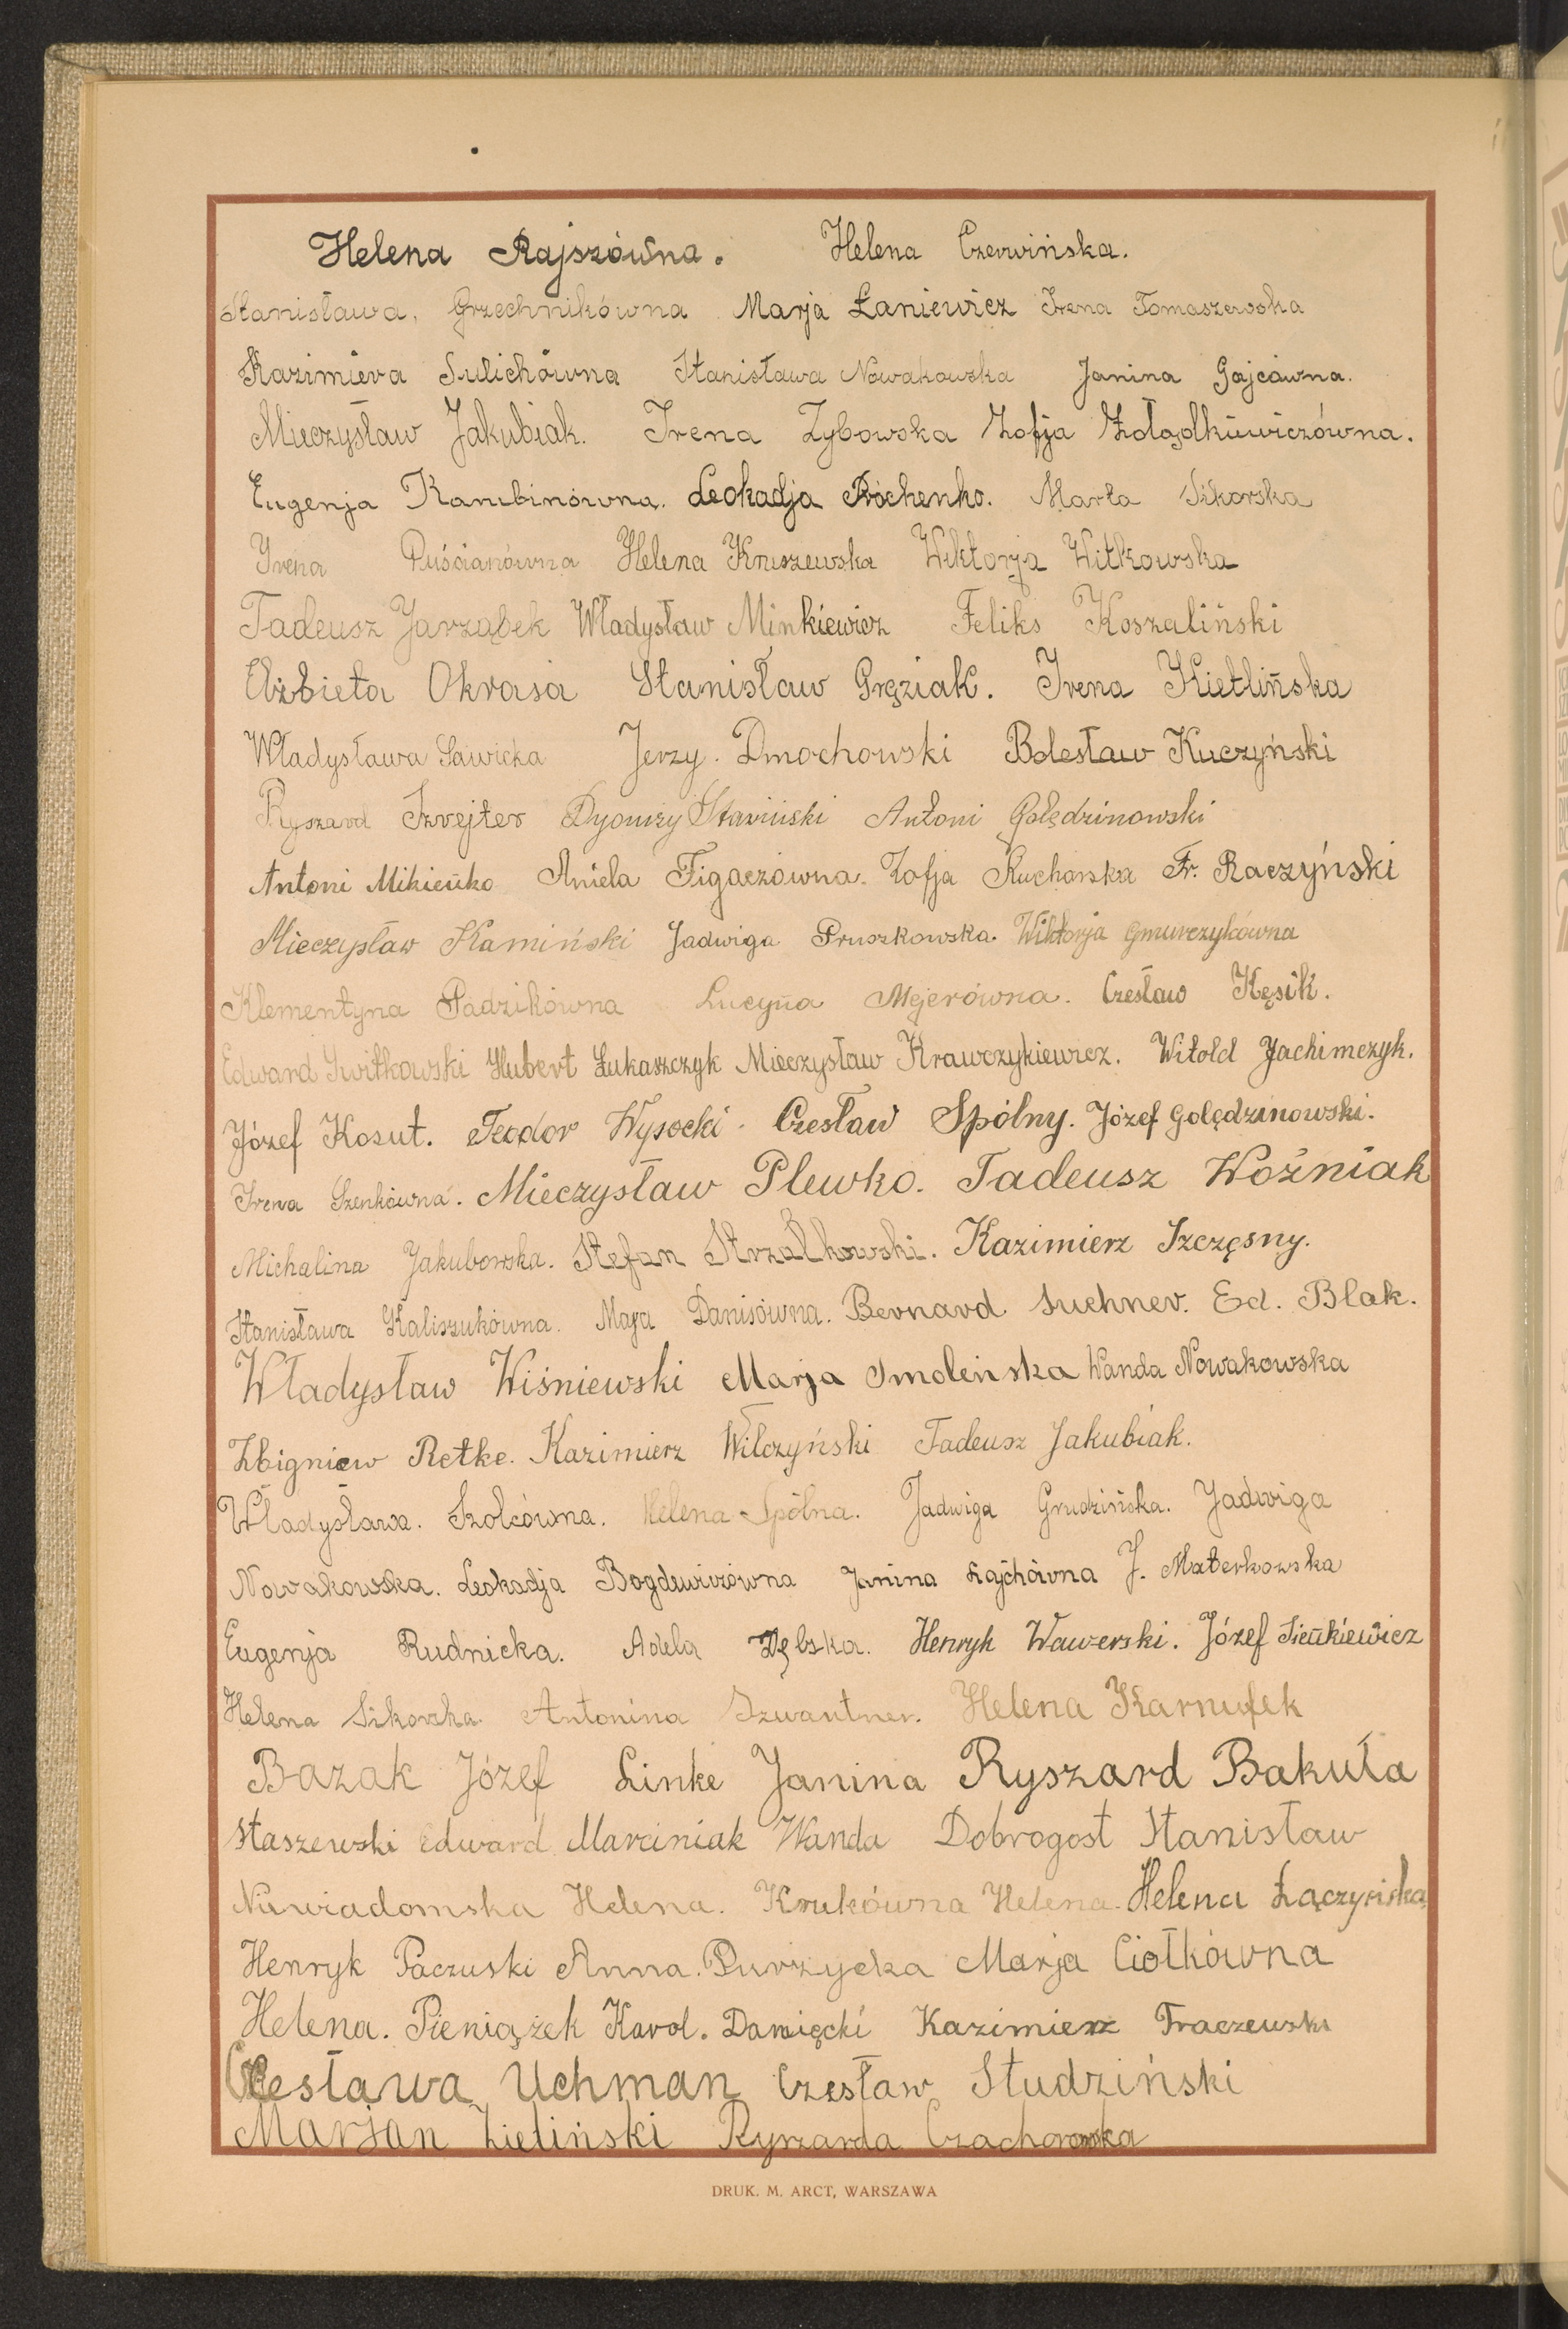 Helena Rajszówna. Helena Czerwińska.
Stanisława. Grzechnikówna Marja Łaniewicz Irena Tomaszewska
Kazimiera Sulichówna Stanisława Nowakowska Janina Gajcówna.
Mieczysław Jakubiak. Irena Zybowska Zofja Żołądkiewiczówna.
Eugenja Kambinówna. Leokadja Próchenko. Marta Sikorska
Irena Puścianówna Helena Kruszewska Wiktorja Witkowska
Tadeusz Jarząbek Władysław Minkiewicz Feliks Koszaliński
Elżbieta Okrasa Stanisław Gręziak. Irena Kietlińska
Władysława Sawicka Jerzy. Dmochowski Bolesław Kuczyński
Ryszard Szvejter Dyonizy Stawiński Antoni Golędzinowski
Antoni Mikieńko Aniela Figaczówna. Zofja Kucharska Fr. Raczyński
Mieczysław Kamiński Jadwiga Pruszkowska. Wiktorja Gmurczykówna
Klementyna Padzikówna Lucyna Mejerówna. Czesław Kęsik.
Edward Świtkowski Hubert Łukaszczyk Mieczysław Krawczykiewicz. Witold Jachimczyk.
Józef Kosut. Teodor Wysocki. Czesław Spólny. Józef Golędzinowski.
Irena Szenkówna. Mieczysław Plewko. Tadeusz Woźniak
Michalina Jakubowska. Stefan Strzałkowski. Kazimierz Szczęsny.
Stanisława Kaliszukówna. Marja Danisówna. Bernard Suchner. Ed. Blak.
Władysław Wiśniewski Marja Smoleńska Wanda Nowakowska
Zbigniew Retke. Kazimierz Wilczyński Tadeusz Jakubiak.
Władysława. Szolcówna. Helena Spólna. Jadwiga Grudzińska. Jadwiga
Nowakowska. Leokadja Bogdewiczówna Janina Łajchówna J. Materkowska
Eugenja Rudnicka. Adela Dębska. Henryk Wawerski. Józef Sieńkiewicz
Helena Sikorska Antonina Szwantner. Helena Karnufek
Bazak Józef Linke Janina Ryszard Bakuła
Staszewski Edward Marciniak Wanda Dobrogost Stanisław
Niewiadomska Helena. Krukówna Helena. Helena Łączyńska
Henryk Paczuski Anna. Purzycka Marja Ciołkówna
Helena. Pieniążek Karol. Danięcki Kazimierz Traczewski
Czesława Uchman Czesław Studziński
Marjan Zieliński Ryszarda Czachorowska
DRUK. M. ARCT, WARSZAWA